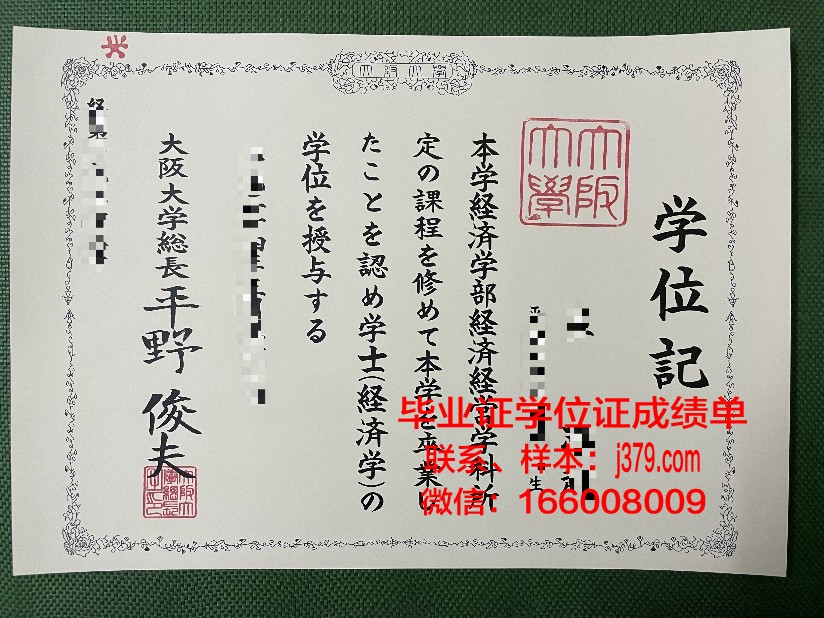 大阪大学
学位記
大阪
大學
本学経済学部経済経営学科所
定の課程を修めて本学を卒業し
たことを認め学士(経済学)の
学位を授与する
大阪大学総長 平野 俊夫
毕业证学位证成绩单
联系、样本：j379.com
微信：166008009